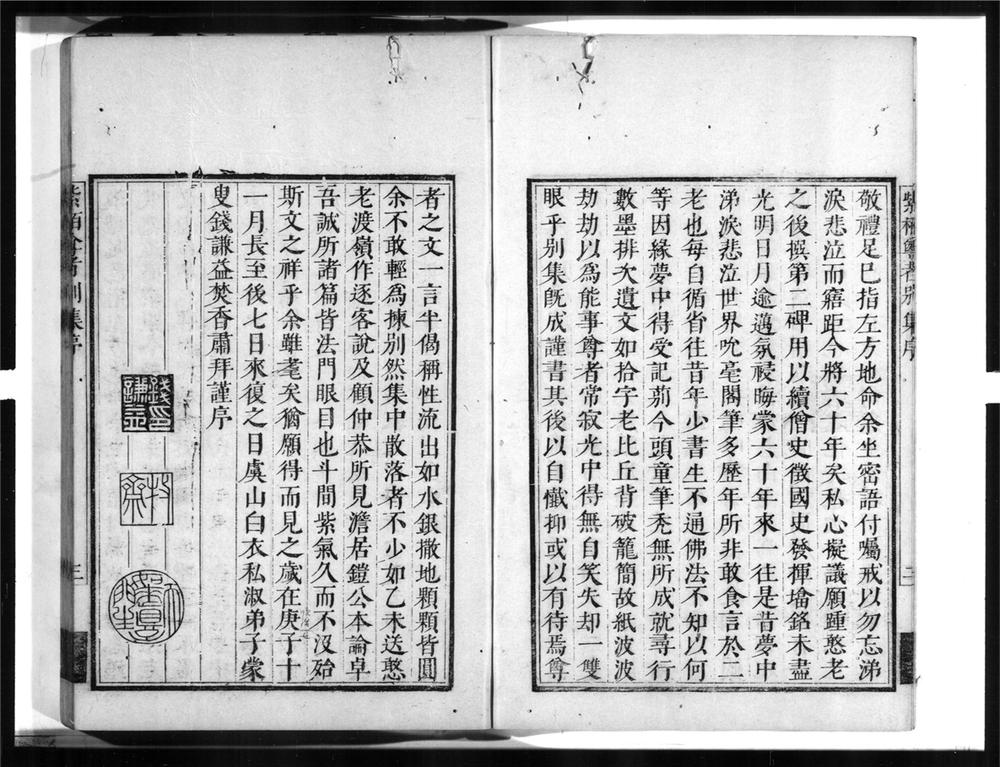 敬禮足巳指左方地命余坐密語付囑戒以勿忘涕
淚悲泣而寤距今將六十年矣私心擬議願踵憨老
之後撰第二碑用以續僧史徵國史發揮墖銘未盡
光明日月逾邁氛祲晦蒙六十年來一往是昔夢中
涕淚悲泣世界吮毫閣筆多歷年所非敢食言於二
老也每自循省往昔年少書生不通佛法不知以何
等因緣夢中得受記莂今頭童筆禿無所成就尋行
數墨排次遺文如拾字老比丘背破籠簡故紙波波
劫劫以爲能事尊者常寂光中得無自笑失却一雙
眼乎別集旣成謹書其後以自懺抑或以有待焉尊
者之文一言半偈稱性流出如水銀撒地顆顆皆圓
余不敢輕爲揀別然集中散落者不少如乙未送憨
老渡嶺作逐客說及顧仲恭所見澹居鎧公本論卓
吾誠所諸篇皆法門眼目也斗間紫氣久而不沒殆
斯文之祥乎余雖耄矣猶願得而見之歲在庚子十
一月長至後七日來復之日虞山白衣私淑弟子蒙
叟錢謙益焚香肅拜謹序
紫栢尊者別集序
三